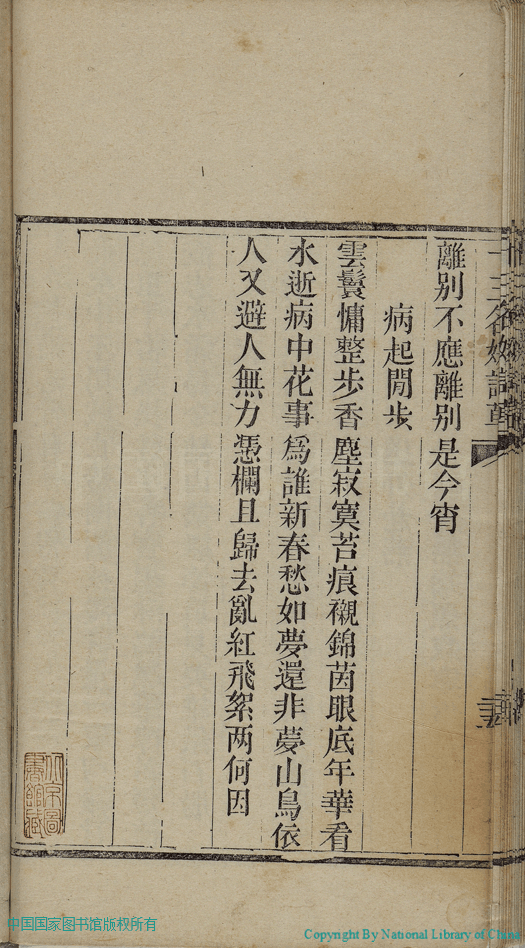 離別不應離別是今宵
病起閒步
雲鬟慵整步香塵寂寞苔痕襯錦茵眼底年華看
水逝病中花事爲誰新春愁如夢還非夢山鳥依
人又避人無力憑欄且歸去亂紅飛絮两何因
中国国家图书馆版权所有
Copyright By National Library of China